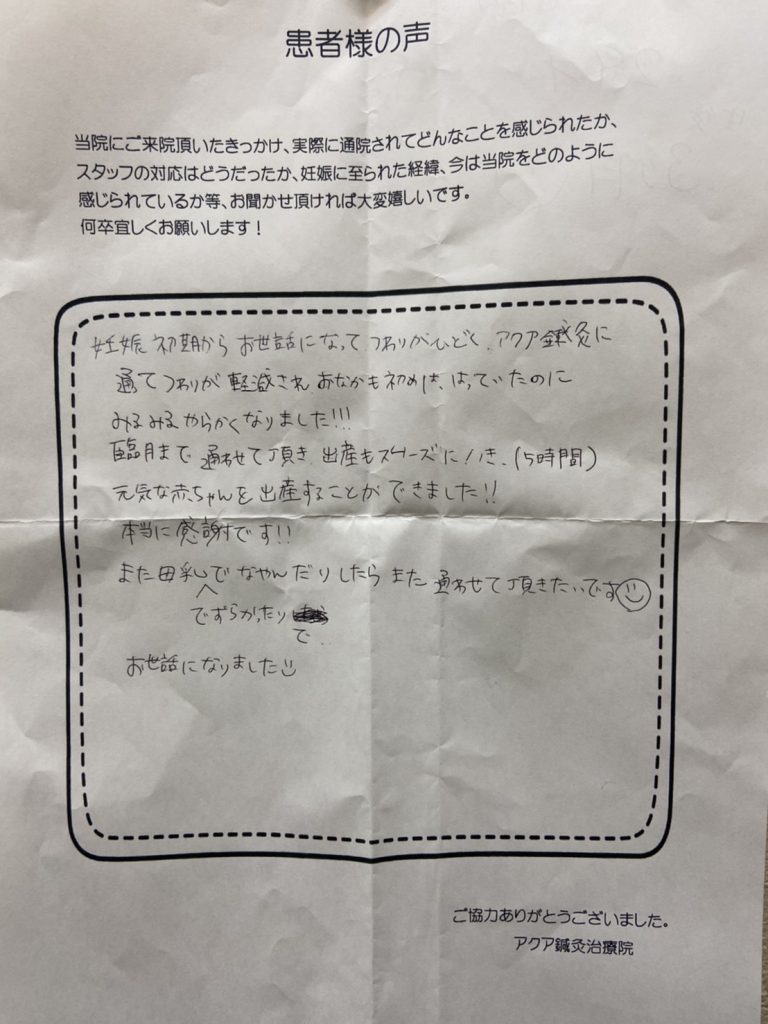 患者様の声
当院にご来院頂いたきっかけ、実際に通院されてどんなことを感じられたか、
スタッフの対応はどうだったか、妊娠に至られた経緯、今は当院をどのように
感じられているか等、お聞かせ頂ければ大変嬉しいです。
何卒宜しくお願いします！
妊娠初期からお世話になって つわりがひどく、アクア鍼灸に
通てつわりが軽減され おなかも初めは、はっていたのに
みるみるやらかくなりました!!!
臨月まで 通わせて頂き、出産もスムーズに (5時間)
元気な赤ちゃんを出産することができました!!
本当に感謝です!!
また母乳で なやんだりしたら また 通わせて頂きたいです
でずらかったり
で
お世話になりました
ご協力ありがとうございました。
アクア鍼灸治療院